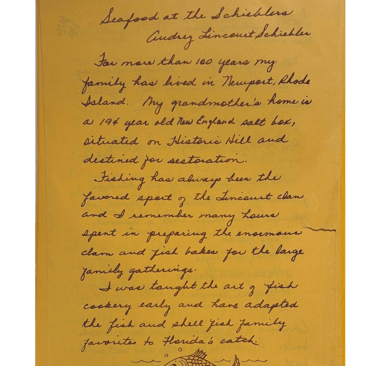 Seafood at the Schieblers
Audrey Lincourt Schiebler
For more than 100 years my
family has lived in Newport, Rhode
Island. My grandmother's home is
a 194 year old New England salt box,
situated on Historic Hill and
destined for restoration.
Fishing has always been the
favored sport of the Lincourt clan
and I remember many hours
spent in preparing the enormous
clam and fish bakes for the large
family gatherings.
I was taught the art of fish
cookery early and have adapted
the fish and shell fish family
favorites to Florida's catch.